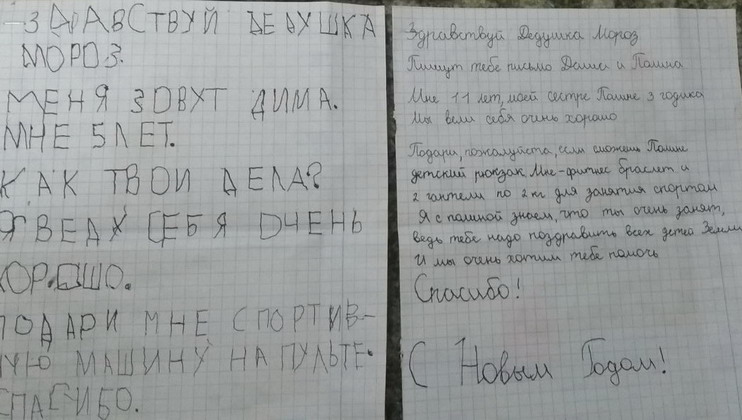 ЗДРАВСТВУЙ ДЕДУШКА
МОРОЗ.
МЕНЯ ЗОВУТ ДИМА.
МНЕ 5 ЛЕТ.
КАК ТВОИ ДЕЛА?
Я ВЕДУ СЕБЯ ОЧЕНЬ
ХОРОШО.
ПОДАРИ МНЕ СПОРТИВ-
НУЮ МАШИНУ НА ПУЛЬТЕ.
СПАСИБО.
Здравствуй Дедушка Мороз
Пишут тебе письмо Даша и Полина
Мне 11 лет, моей сестре Полине 3 годика
Мы вели себя очень хорошо
Подари, пожалуйста, если сможешь Полине
детский рюкзак. Мне-фитнес браслет и
2 гантели по 2 кг для занятия спортом
Я с полиной знаем, что ты очень занят,
ведь тебе надо поздравить всех детей Земли
И мы очень хотим тебе помочь
Спасибо!
С Новым Годом!